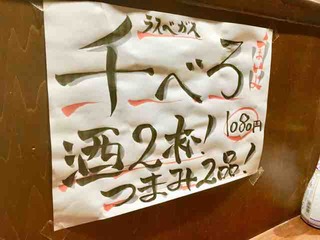 ラスベガス
ほぼ
千べろ
1080円
酒2杯!
つまみ2品!